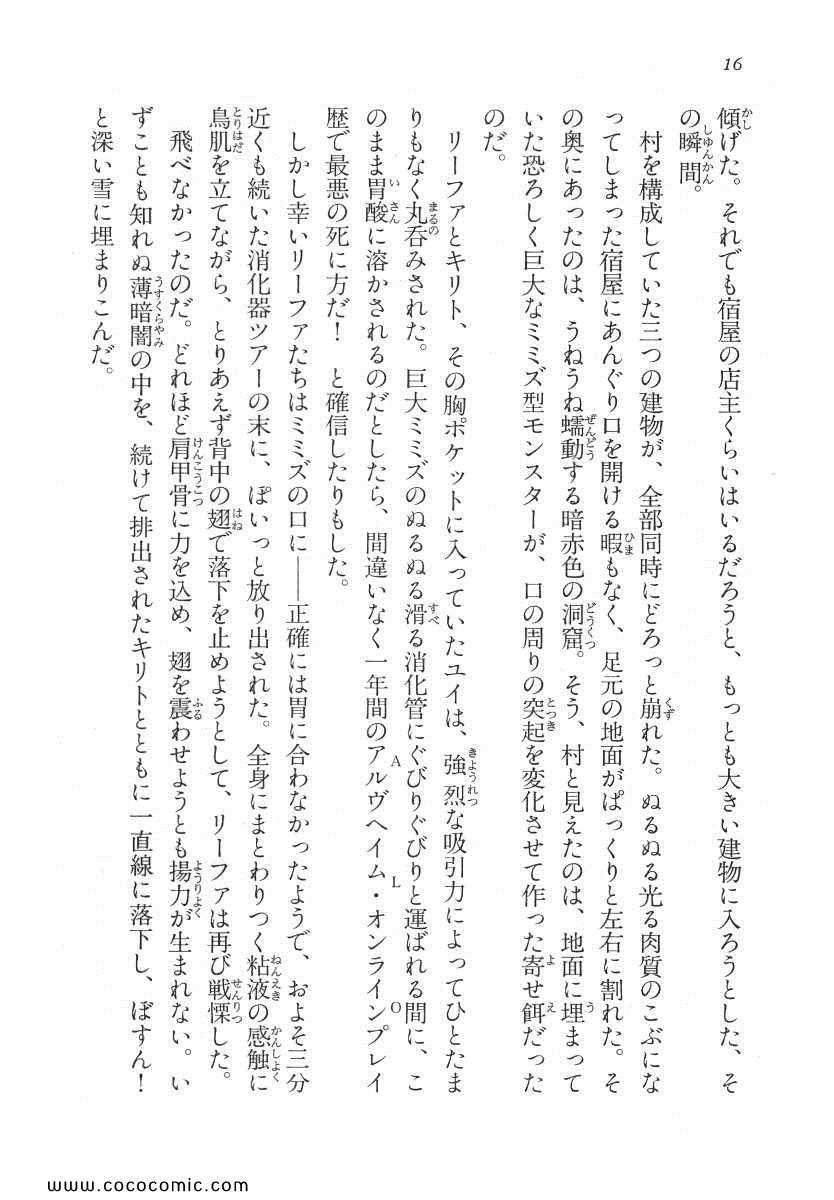 16
傾げた。それでも宿屋の店主くらいはいるだろうと、もっとも大きい建物に入ろうとした、そ
の瞬間。
村を構成していた三つの建物が、全部同時にどろっと崩れた。ぬるぬる光る肉質のこぶにな
ってしまった宿屋にあんぐり口を開ける暇もなく、足元の地面がぱっくりと左右に割れた。そ
の奥にあったのは、うねうね蠕動する暗赤色の洞窟。そう、村と見えたのは、地面に埋まって
いた恐ろしく巨大なミミズ型モンスターが、口の周りの突起を変化させて作った寄せ餌だった
のだ。
リーファとキリト、その胸ポケットに入っていたユイは、強烈な吸引力によってひとたま
りもなく丸呑みされた。巨大ミミズのぬるぬる滑る消化管にぐびりぐびりと運ばれる間に、こ
のまま胃酸に溶かされるのだとしたら、間違いなく一年間のアルヴヘイム・オンラインプレイ
歴で最悪の死に方だ！　と確信したりもした。
しかし幸いリーファたちはミミズの口に――正確には胃に合わなかったようで、およそ三分
近くも続いた消化器ツアーの末に、ぽいっと放り出された。全身にまとわりつく粘液の感触に
鳥肌を立てながら、とりあえず背中の翅で落下を止めようとして、リーファは再び戦慄した。
飛べなかったのだ。どれほど肩甲骨に力を込め、翅を震わせようとも揚力が生まれない。い
ずことも知れぬ薄暗闇の中を、続けて排出されたキリトとともに一直線に落下し、ぼすん！
と深い雪に埋まりこんだ。
www.cococomic.com